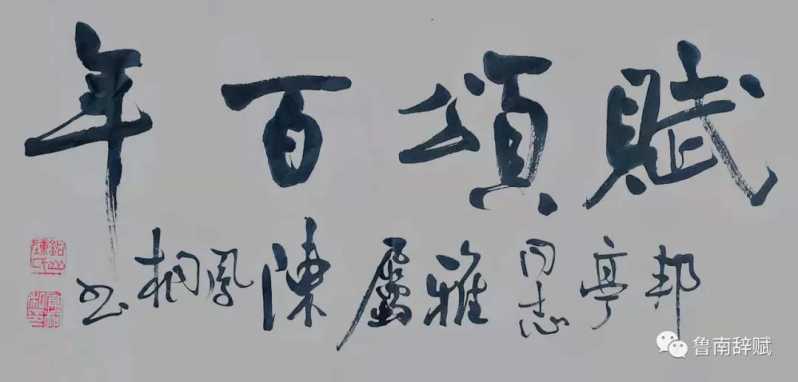 賦頌百年
邦亭同志雅屬陳鳳桐书
鲁南辞赋